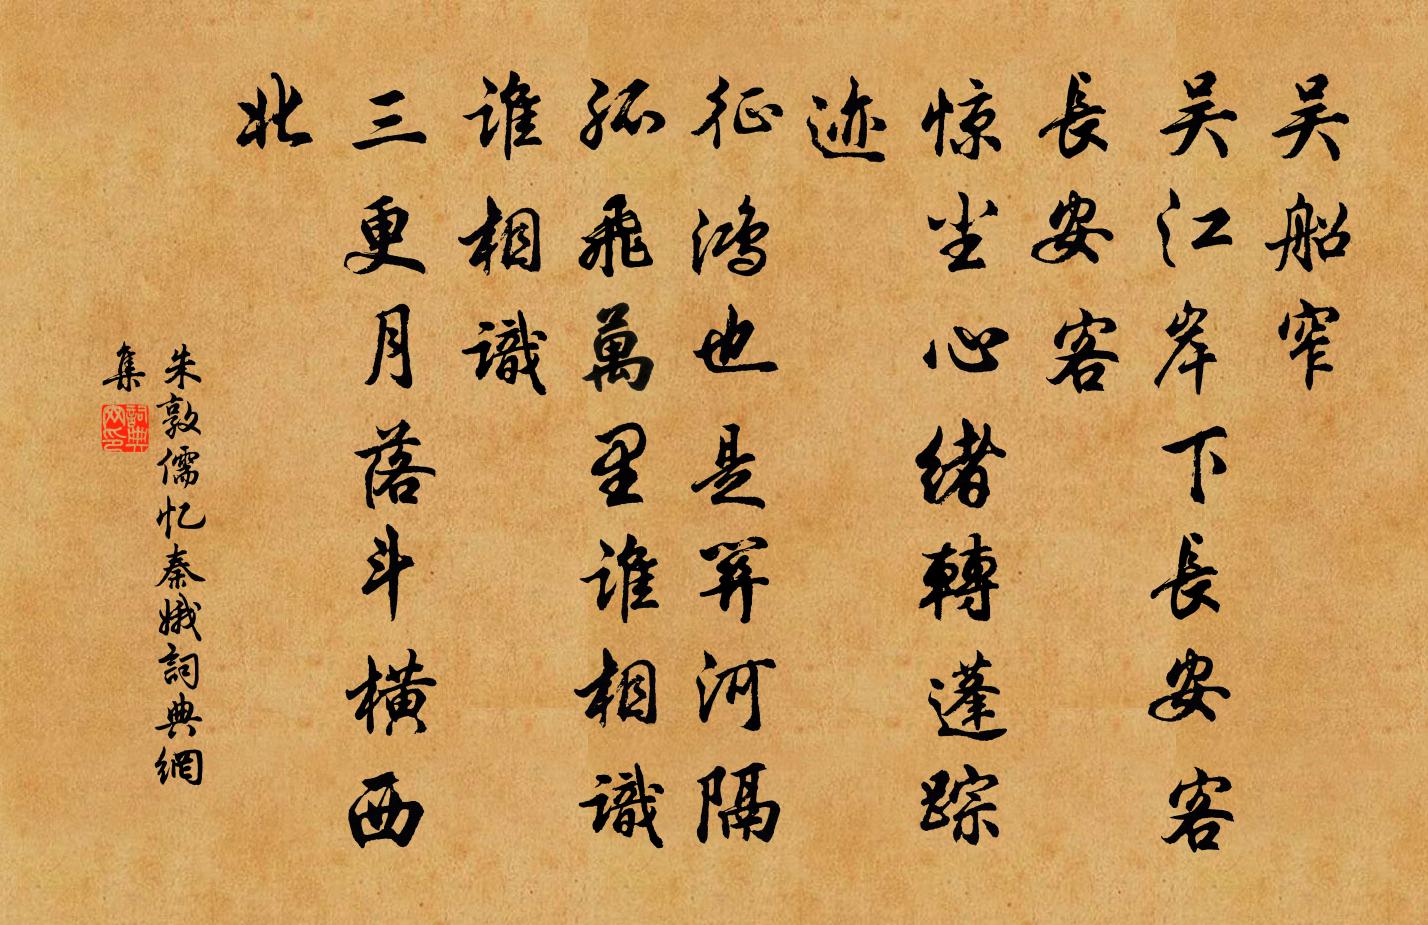 吴船窄
吴江岸下長安客
長安客
惊尘心緒轉蓬踪
迹
征鸿也是関河隔
孤飛萬里谁相識
谁相識
三更月落斗横西
北
朱敦儒忆秦娥詞典網
集
詞典网印